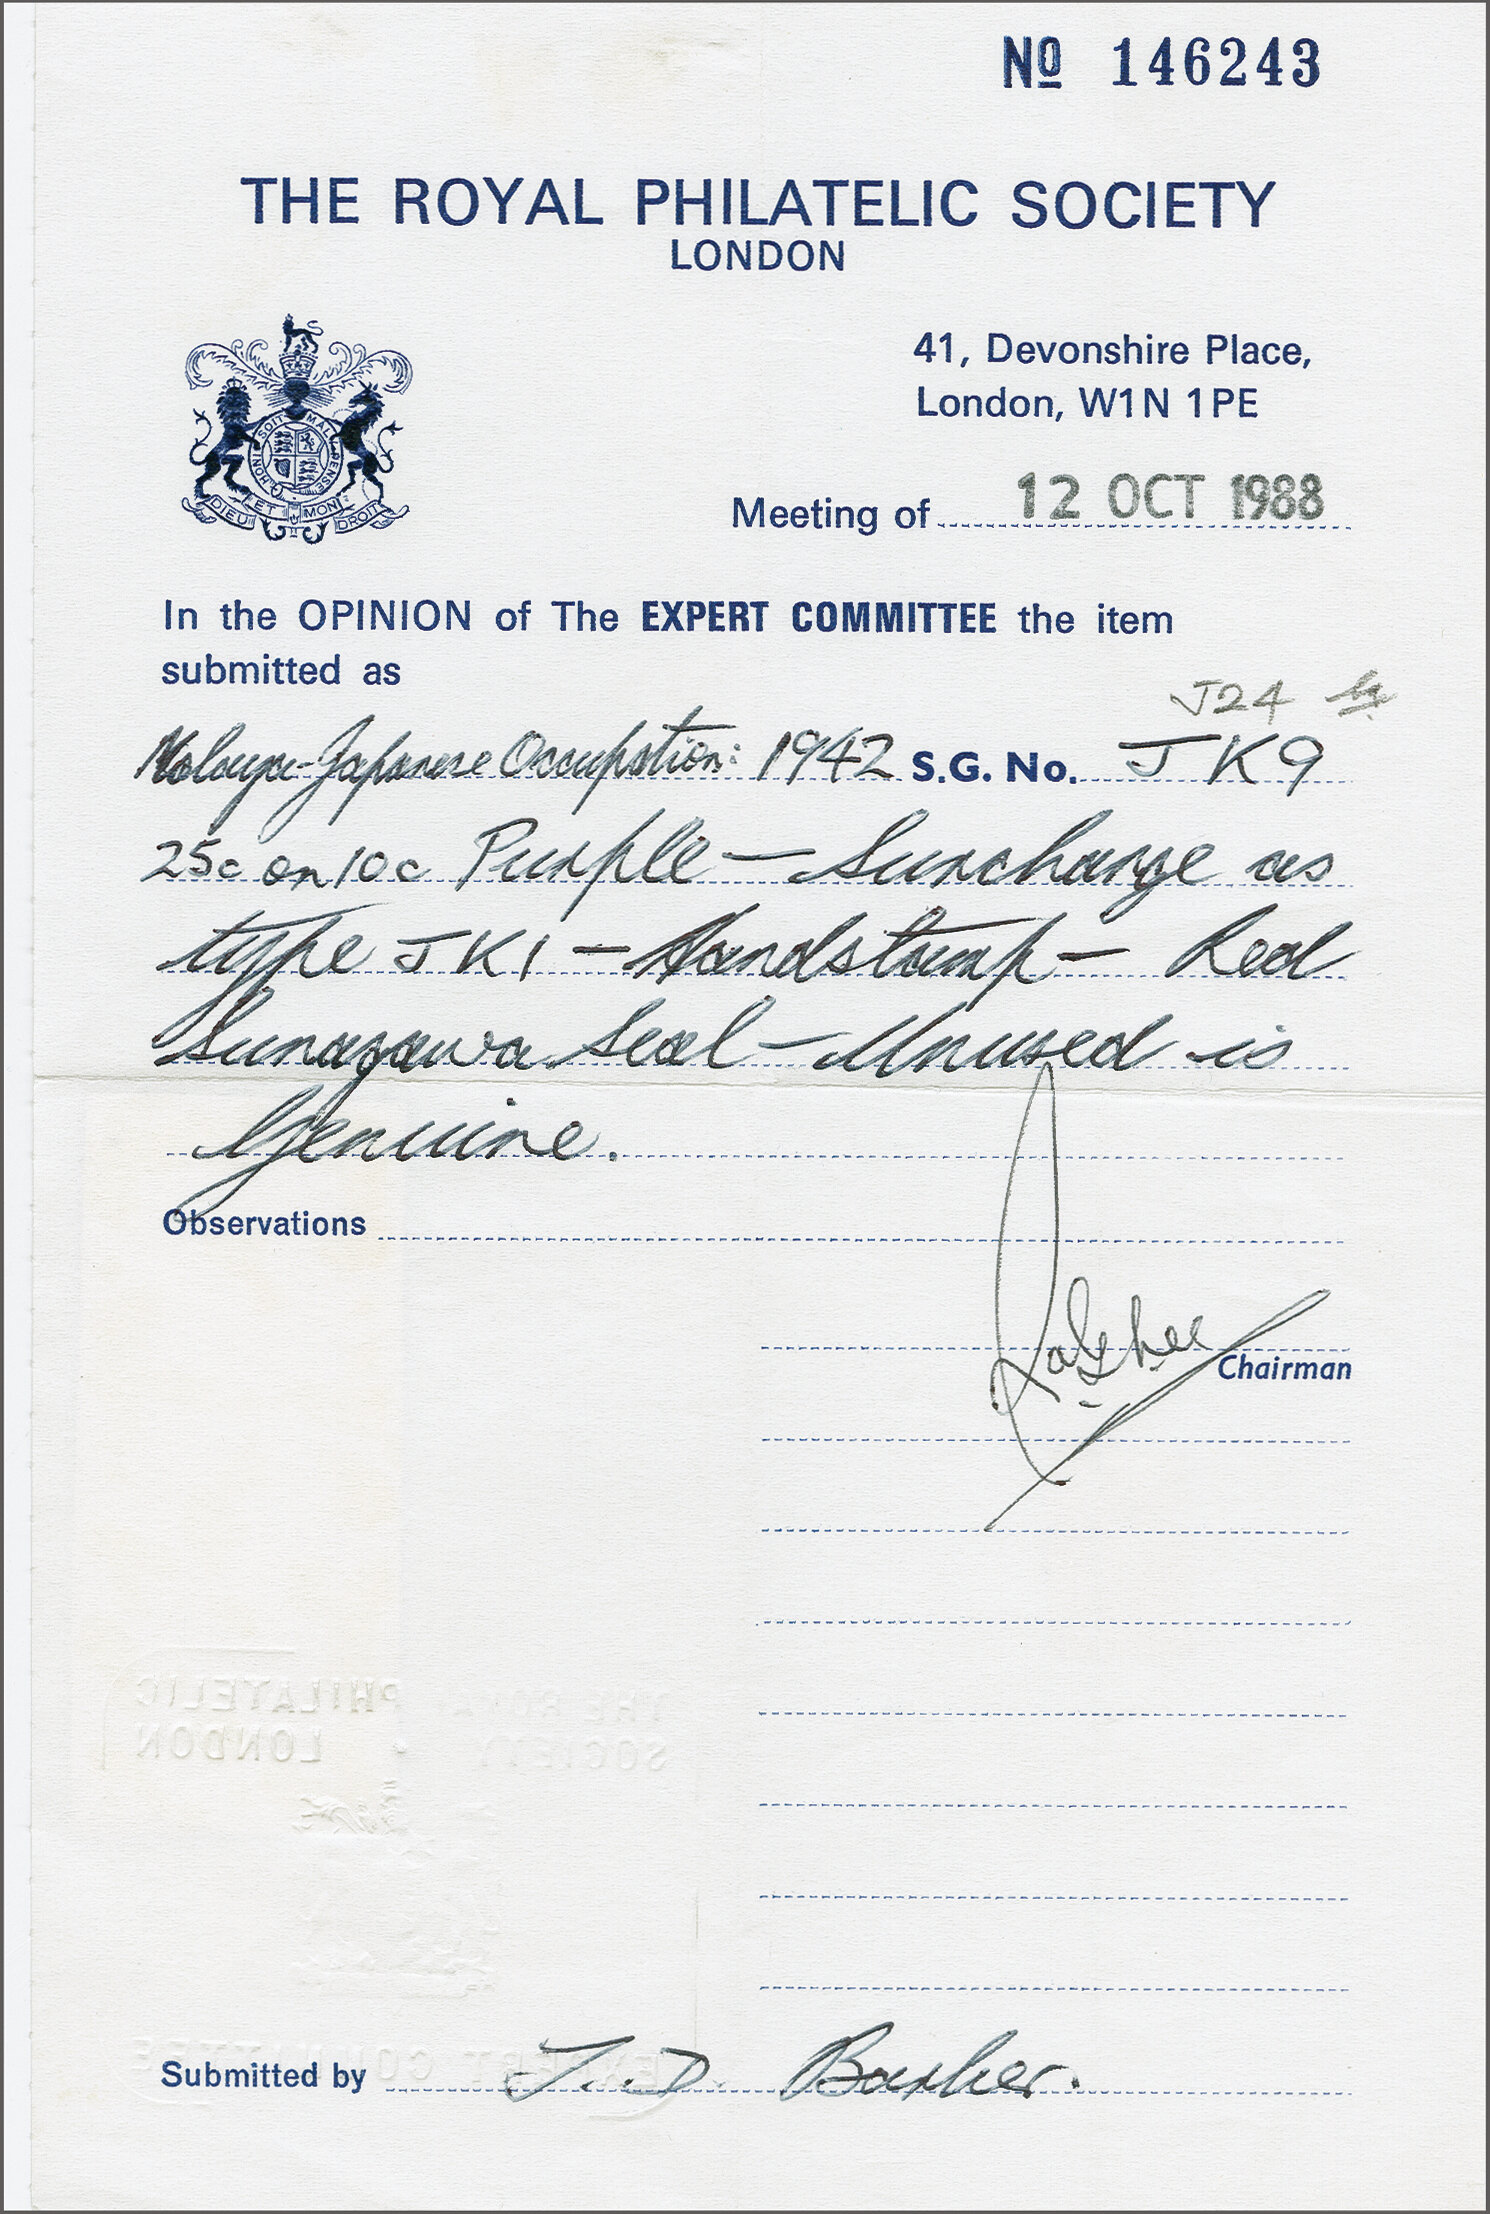 No 146243
THE ROYAL PHILATELIC SOCIETY
LONDON
41, Devonshire Place,
London, W1N 1PE
SOIT MAL Y PENSE HONI
DIEU ET MON DROIT
Meeting of 12 OCT 1988
In the OPINION of The EXPERT COMMITTEE the item
submitted as
J24
Malaya-Japanese Occupation: 1942 S.G. No. JK9
25c on 10c Purple — Surcharge as
type JK1 — Handstamp — Red
Sunagawa Seal — Unused is
Genuine.
Observations
Chairman
THE ROYAL PHILATELIC
SOCIETY LONDON
EXPERT COMMITTEE
Submitted by J. D. Barker.